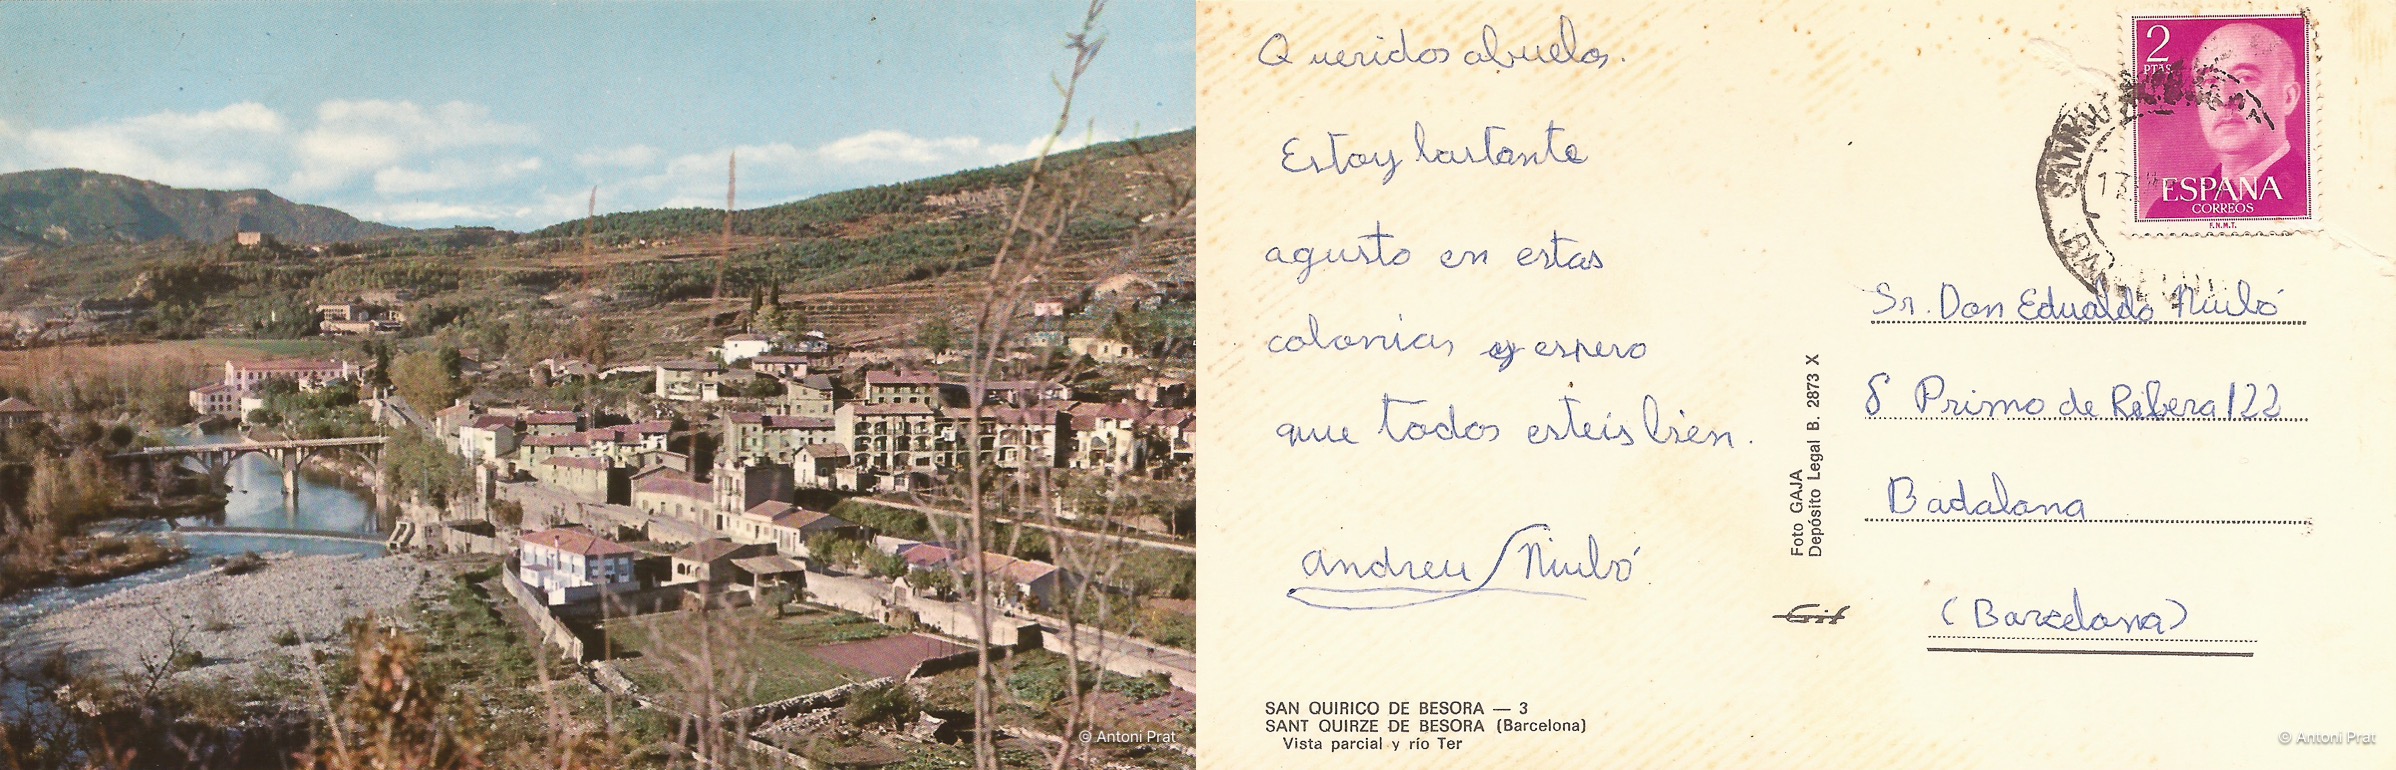 © Antoni Prat
Queridos abuelos.
Estoy bastante
agusto en estas
colonias y espero
que todos esteis bién.
Andreu Niubó
SAN QUIRICO DE BESORA — 3
SANT QUIRZE DE BESORA (Barcelona)
Vista parcial y río Ter
Foto GAJA
Depósito Legal B. 2873 X
Gif
2
PTAS
ESPAÑA
CORREOS
F.N.M.T.
13
Sr. Don Edualdo Niubó
Primo de Ribera 122
Badalona
(Barcelona)
© Antoni Prat